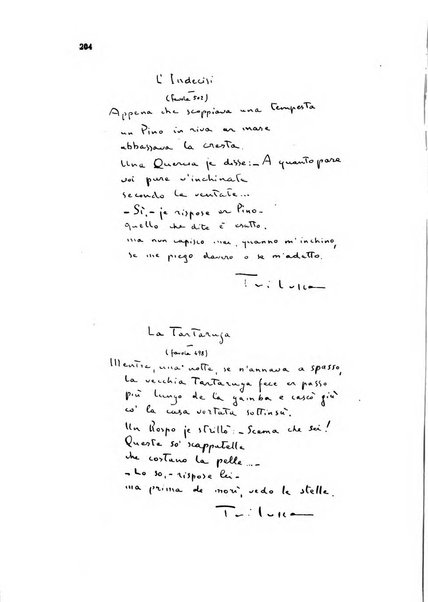 204
L'Indecisi
(favola 502)
Appena che scoppiava una tempesta
un Pino in riva ar mare
abbassava la cresta.
Una Quercia je disse: – A quanto pare
voi pure v'inchinate
secondo le ventate...
– Sì, – je rispose er Pino –
quello che dite è esatto.
ma nun capisco mai, quanno m'inchino,
se me piego davero o se m'adatto.
Trilussa
La Tartaruga
(favola 498)
Mentre, una notte, se n'annava a spasso,
la vecchia Tartaruga fece er passo
più lungo de la gamba e cascò giù
co' la casa vortata sottinsù.
Un Rospo je strillò: – Scema che sei!
Queste so' scappatelle
che costano la pelle....
– Lo so, – rispose lei –
ma prima de morì, vedo le stelle.
Trilussa